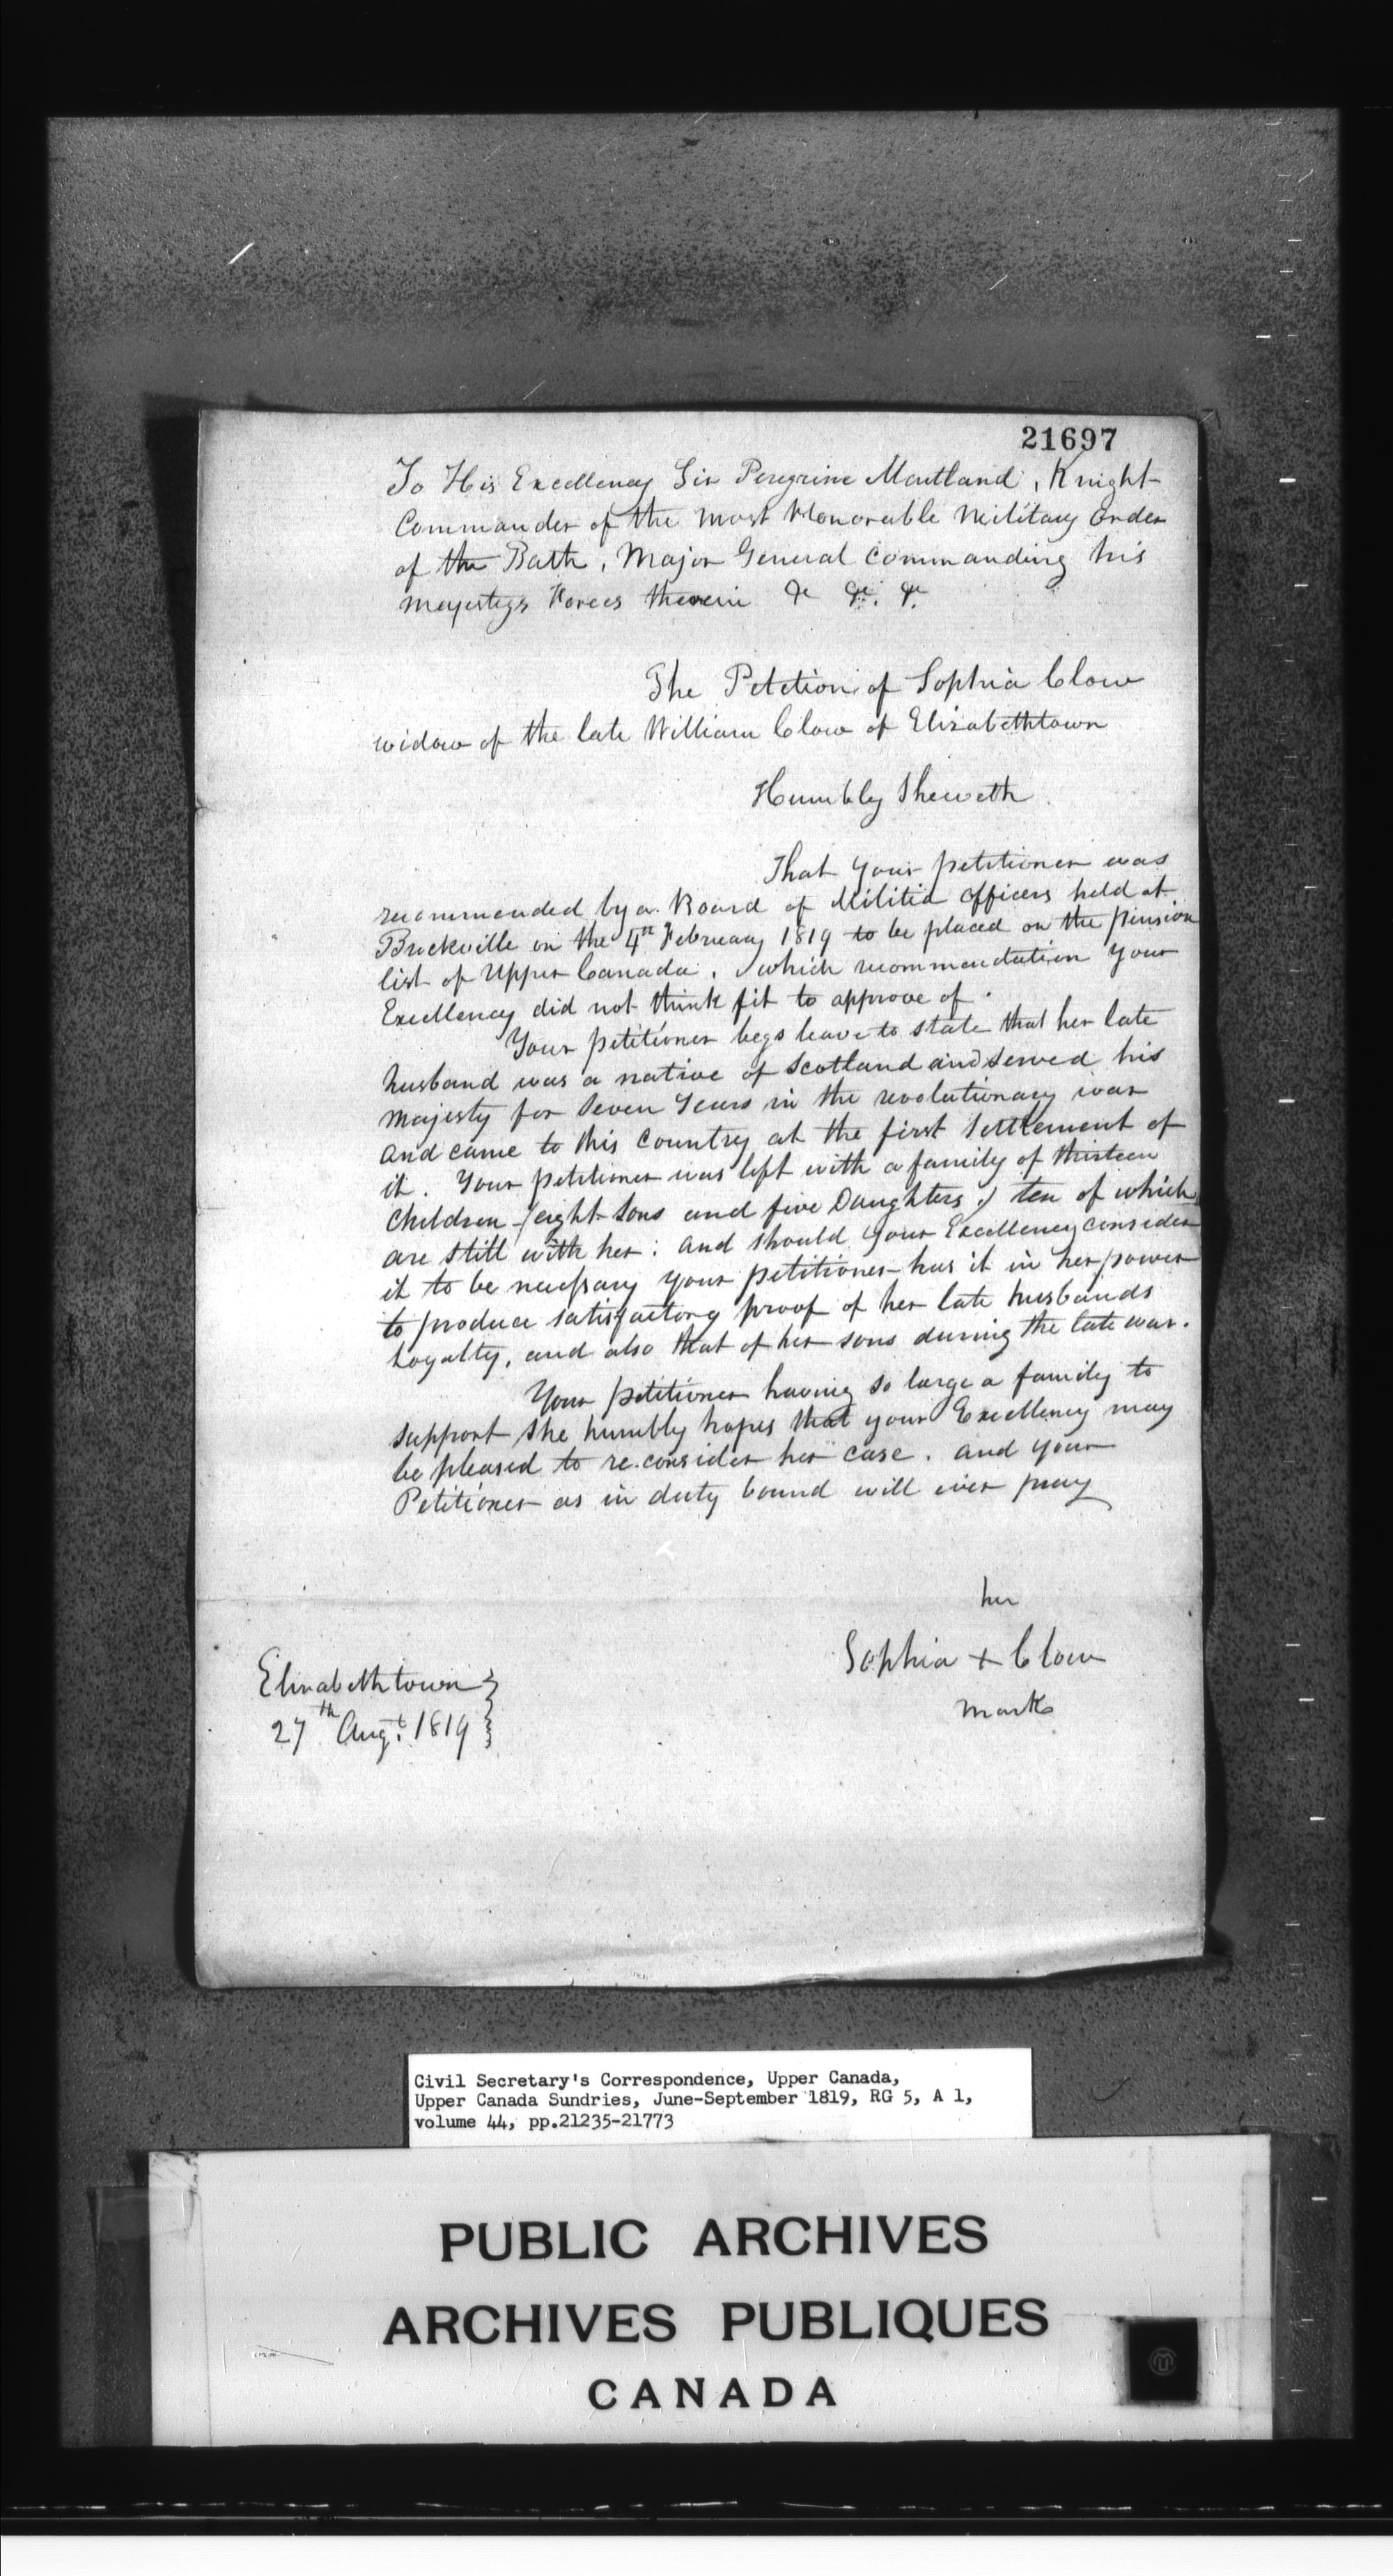 21697
To His Excellency Sir Peregrine Maitland, Knight
Commander of the most Honorable Military Order
of the Bath, Major General Commanding his
Majestys Forces therein &c &c. &c.
The Petition of Sophia Clow
widow of the late William Clow of Elizabethtown
Humbly Sheweth
That your petitioner was
recommended by a Board of Militia officers held at
Brockville on the 4th February 1819 to be placed on the pension
list of Upper Canada, which recommendation your
Excellency did not think fit to approve of.
Your petitioner begs leave to state that her late
husband was a native of Scotland and served his
majesty for Seven Years in the revolutionary war
and came to this Country at the first Settlement of
it. Your petitioner was left with a family of thirteen
Children (eight Sons and five Daughters) ten of which
are still with her: and should your Excellency consider
it to be necessary your petitioner has it in her power
to produce satisfactory proof of her late husbands
Loyalty, and also that of her sons during the late war.
Your petitioner having so large a family to
support she humbly hopes that your Excellency may
be pleased to re.consider her case. and your
Petitioner as in duty bound will ever pray
her
Sophia + Clow
mark
Elizabethtown
27th Augt. 1819
Civil Secretary's Correspondence, Upper Canada,
Upper Canada Sundries, June-September 1819, RG 5, A 1,
volume 44, pp.21235-21773
PUBLIC ARCHIVES
ARCHIVES PUBLIQUES
CANADA